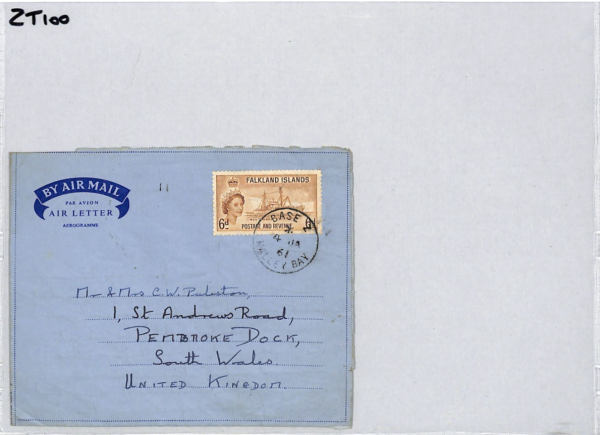 ZT100
BY AIR MAIL
PAR AVION
AIR LETTER
AEROGRAMME
FALKLAND ISLANDS
6d
POSTAGE AND REVENUE
BASE Z
61
HALLEY BAY
Mr & Mrs C. W.
1, St Andrews Road,
PEMBROKE DOCK,
South Wales.
UNITED KINGDOM.